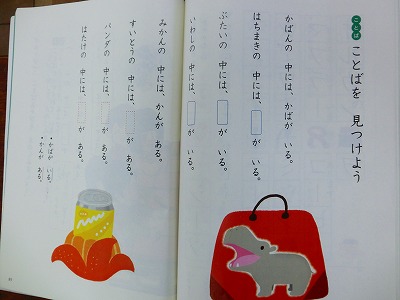 ことば
ことばを 見つけよう
かばんの 中には、かばが いる。
はちまきの 中には、が いる。
ぶたいの 中には、が いる。
いわしの 中には、が いる。
みかんの 中には、かんが ある。
すいとうの 中には、が ある。
パンダの 中には、が ある。
はたけの 中には、が ある。
・かばが いる。
・かんが ある。